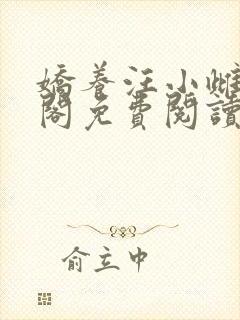 嬌養汪小雌
閣免費閱讀
俞立中